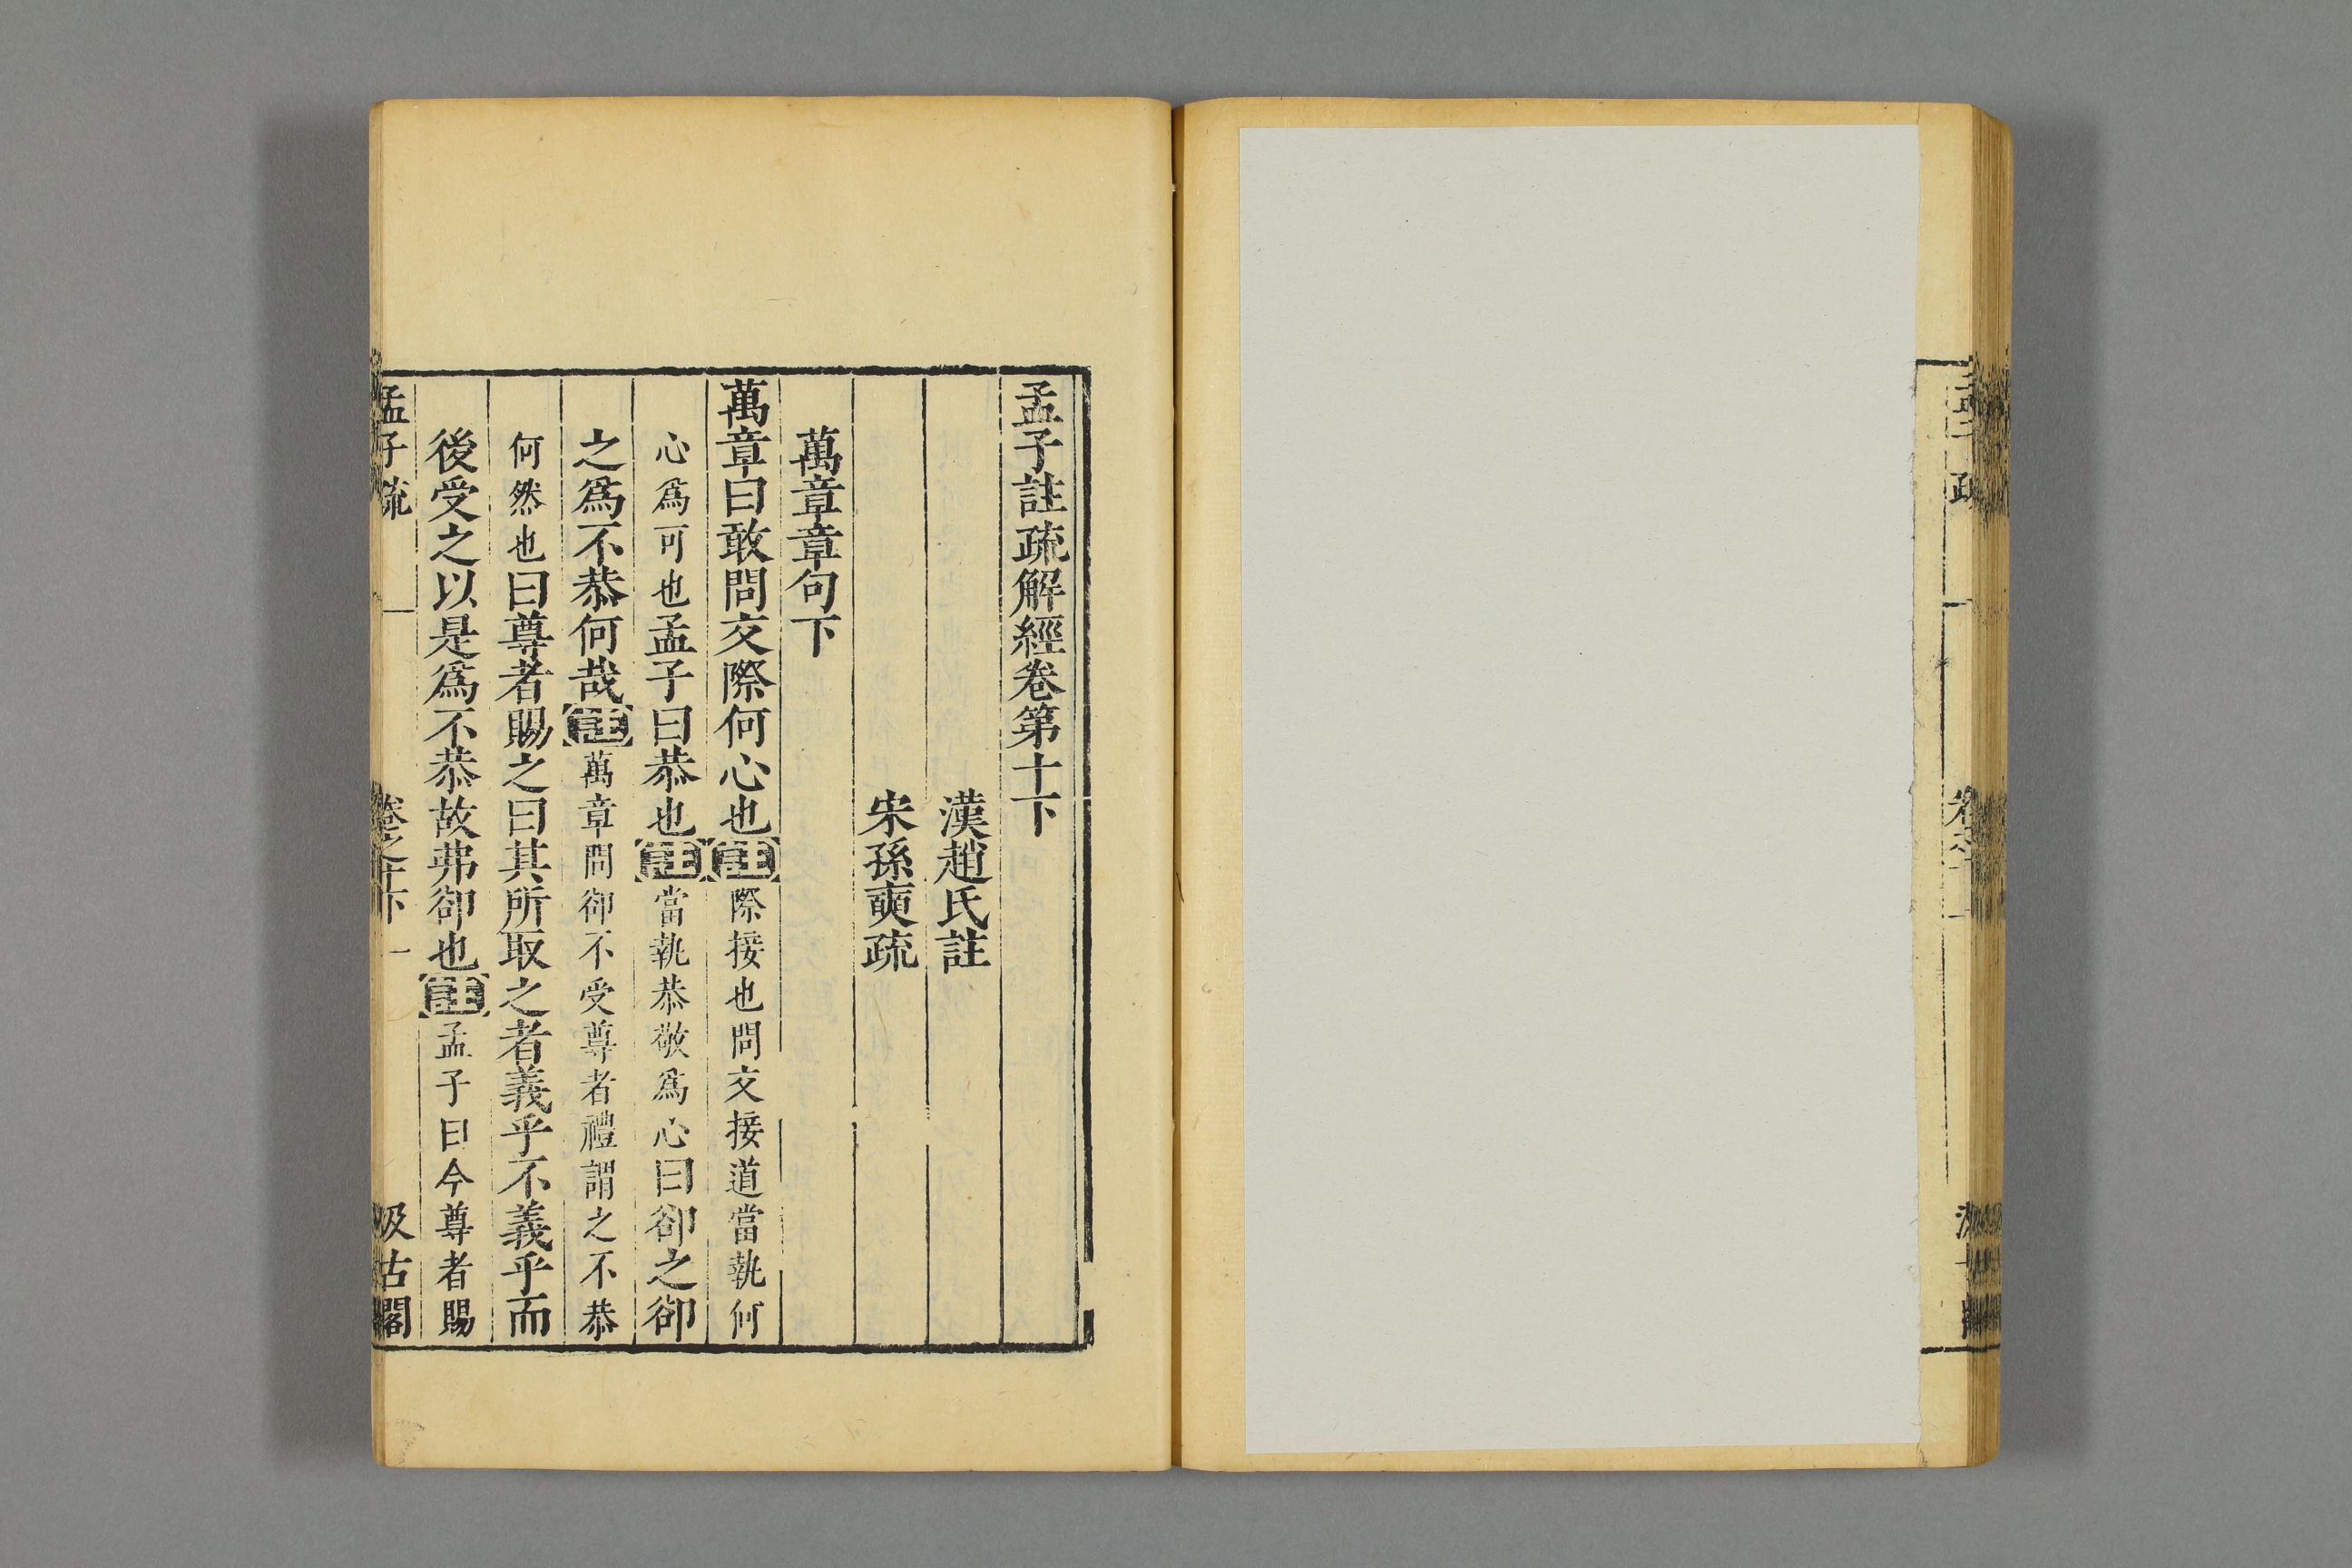 孟子註疏解經卷第十下
漢趙氏註
宋孫奭疏
萬章章句下
萬章曰敢問交際何心也註際接也問交接道當執何
心爲可也孟子曰恭也註當執恭敬爲心曰卻之卻
之爲不恭何哉註萬章問卻不受尊者禮謂之不恭
何然也曰尊者賜之曰其所取之者義乎不義乎而
後受之以是爲不恭故弗卻也註孟子曰今尊者賜
孟子疏 卷之十下 一 汲古閣